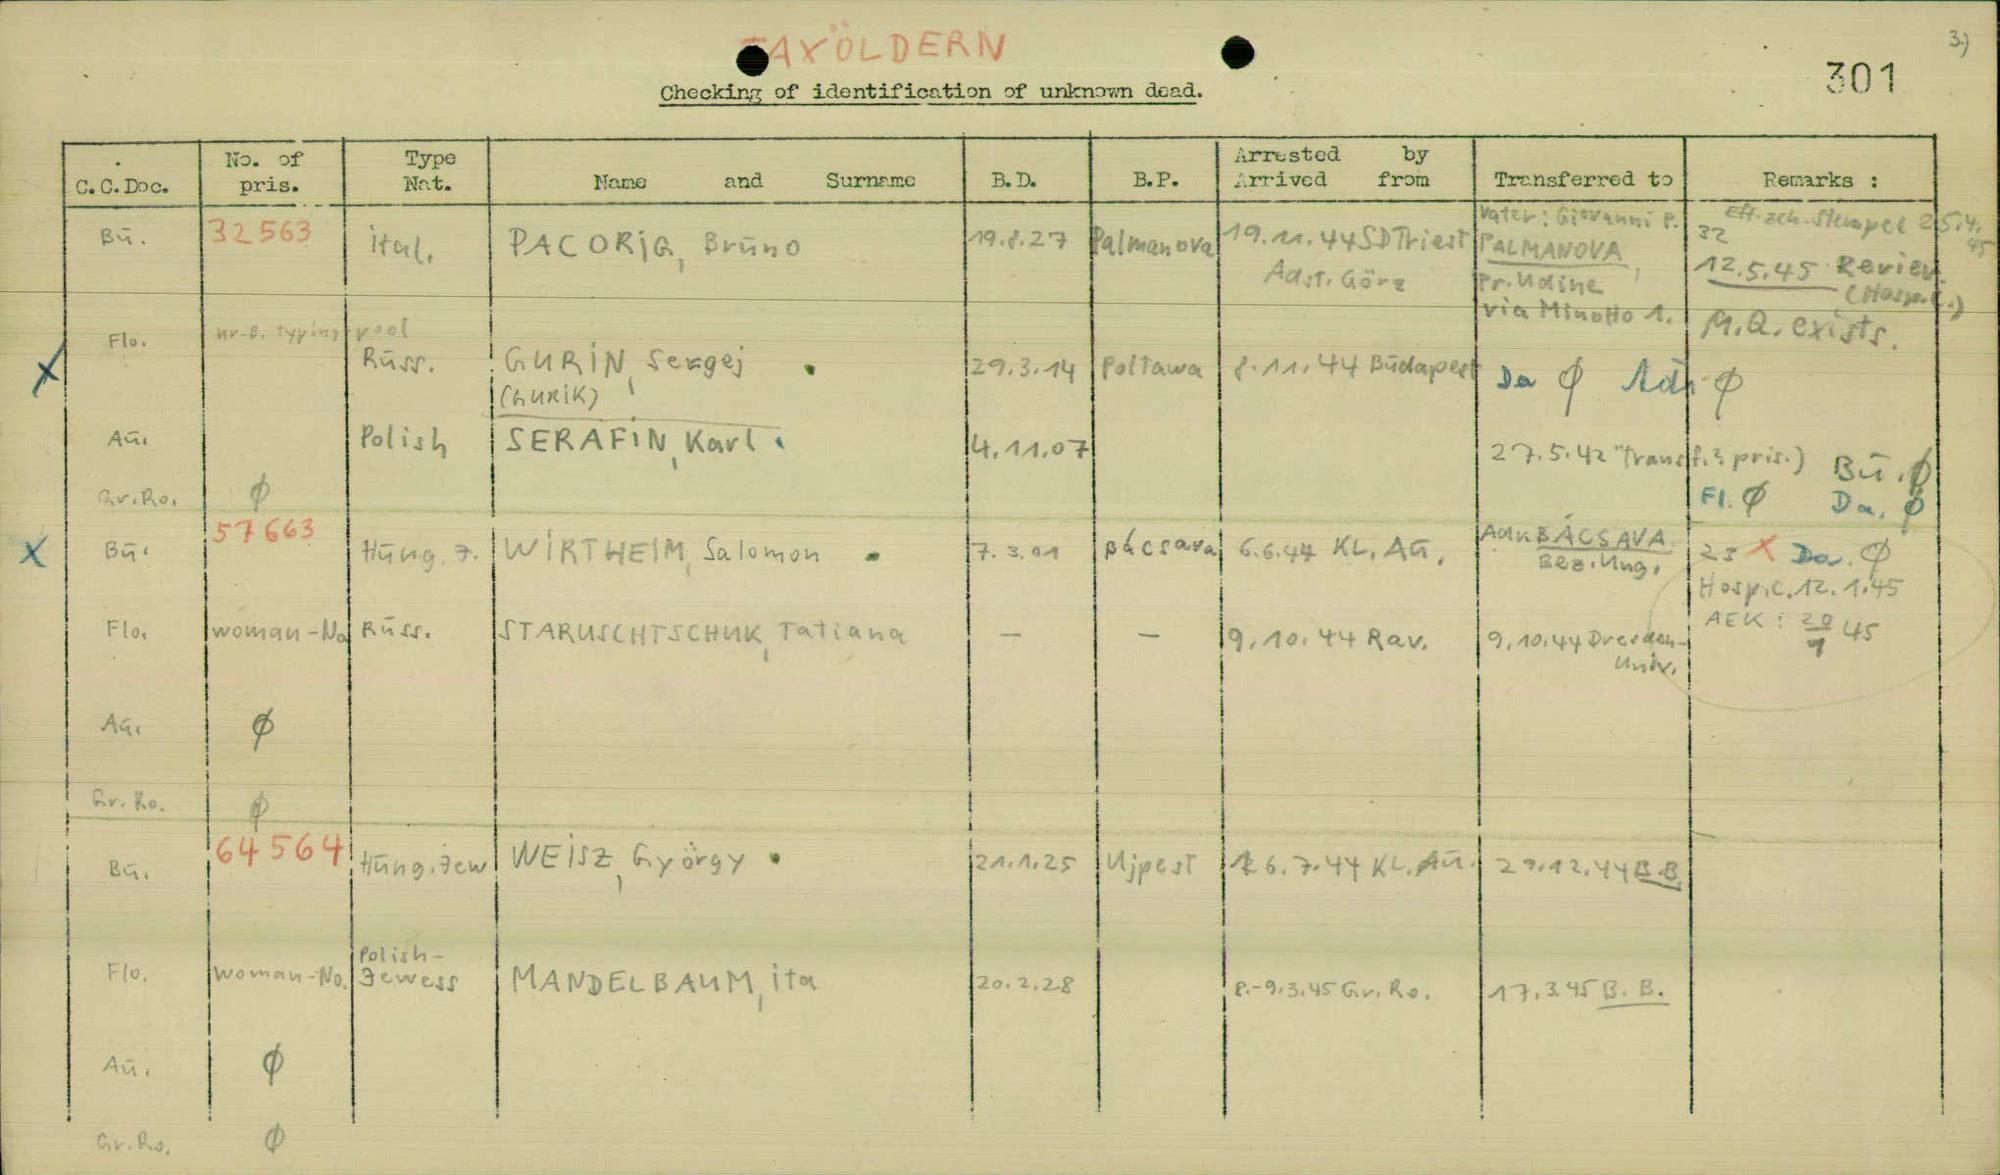 TAXÖLDERN
3.)
301
Checking of identification of unknown dead.
C.C.Doc. No. of pris. Type Nat. Name and Surname B.D. B.P. Arrested by Arrived from Transferred to Remarks :
Bū. 32563 ital. PACORiG, Brūno 19.8.27 Palmanova 19.11.44 SD Triest Vater: Giovanni P. Eff. Stempel 25.4.45
Adst. Görz PALMANOVA, 32
Pr. Udine 12.5.45 Revier
via Minotto 1. (Hosp.)
M.Q. exists.
Flo. nr-B. typing-pool Rūss. GURiN, Sergej 29.3.14 Poltawa 8.11.44 Būdapest Da ø ø
(GURiK)
Aū. Polish SERAFiN, Karl 4.11.07 27.5.42 "Transf. pris.) Bū. ø
Gr.Ro. ø Fl. ø Da. ø
Bū. 57663 Hūng. J. WiRTHEiM, Salomon 7.3.01 Bácsava 6.6.44 KL. Aū. BÁCSAVA 23 X Da. ø
Bez. Ung. Hosp.C. 12.1.45
Flo. woman-No Rūss. STARUSCHTSCHUK, Tatiana — — 9.10.44 Rav. 9.10.44 Dresden- AEK: 20/1 45
Univ.
Aū. ø
Gr.Ro. ø
Bū. 64564 Hūng. Jew WEiSZ, György 21.1.25 Ujpest 6.7.44 KL. Aū. 29.12.44 B.B.
Flo. woman-No. Polish-Jewess MANDELBAUM, ita 20.2.28 8.-9.3.45 Gr.Ro. 17.3.45 B.B.
Aū. ø
Gr.Ro. ø